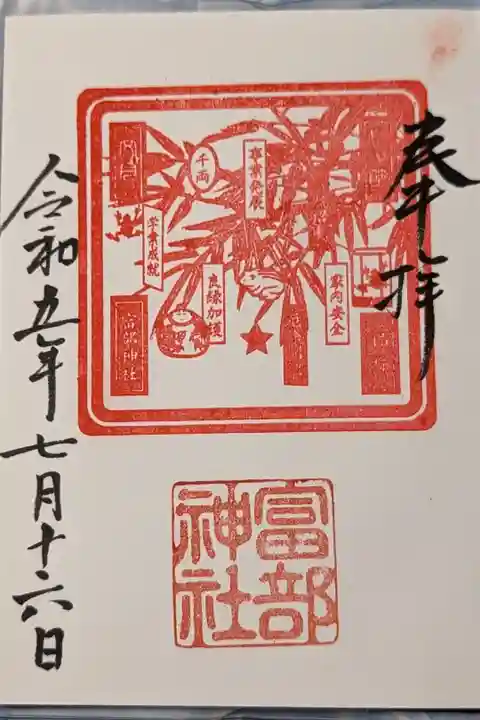 奉拝
事業発展
千両
学業成就
良縁加護
家内安全
富部神社
富部
神社
令和五年七月十六日